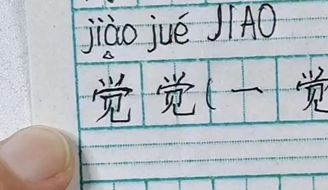 jiào jué JIAO
觉 觉(一 觉